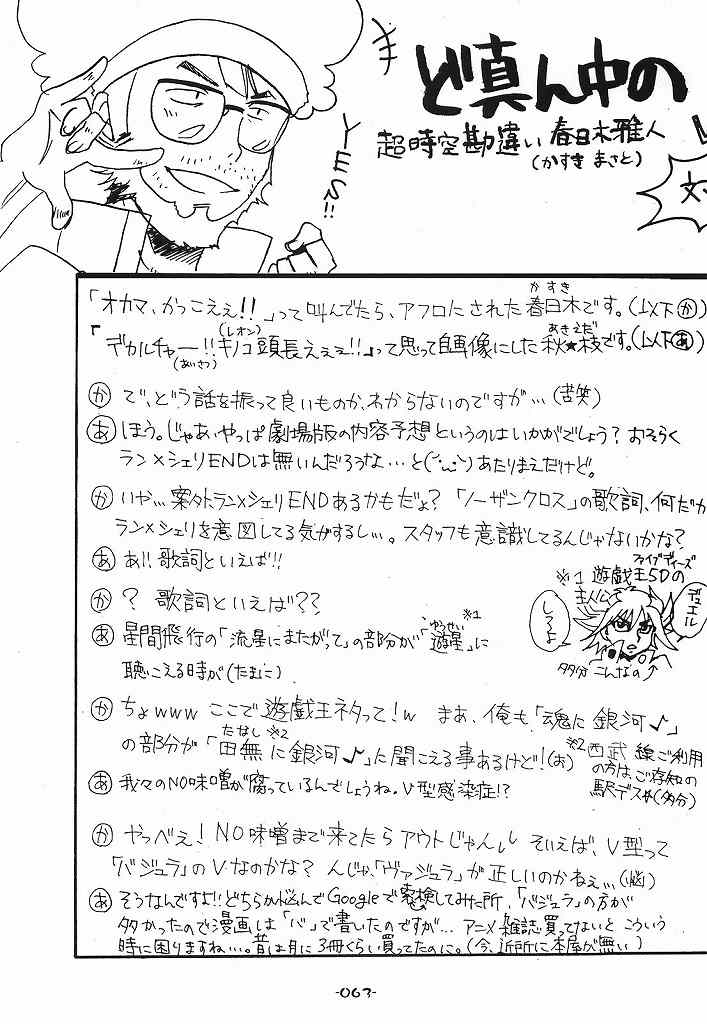 ど真ん中の
超時空勘違い 春日木雅人
(かすき まさと)
イエス!!
「オカマ、かっこえぇ!!」って叫んでたら、アフロにされた春日木です。(以下か)
かすき
「デカルチャー!!キノコ頭長えぇぇ!!」って思って自画像にした秋★枝です。(以下あ)
(あいさつ)
(レオン)
あきえだ
か で、どう話を振って良いものか、わからないのですが…(苦笑)
あ ほう。じゃあ、やっぱ劇場版の内容予想というのはいかがでしょう?おそらく
ラン×シェリENDは無いんだろうな…と(´・ω・`)あたりまえだけど。
か いや…案外ラン×シェリENDあるかもだよ?「ノーザンクロス」の歌詞、何だか
ラン×シェリを意図してる気がするし…。スタッフも意識してるんじゃないかな?
あ あ!!歌詞といえば!!
か ? 歌詞といえば??
あ 星間飛行の「流星にまたがって」の部分が「遊星」に
ゆうせい ※1
聴こえる時が(たまに)
※1 遊戯王5Dの
ファイブディーズ
主人公
デュエル
しろよ
多分こんなの↑
か ちょwww ここで遊戯王ネタって!w まあ、俺も「魂に銀河♪」
の部分が「田無に銀河♪」に聞こえる事あるけど!(お)
たなし ※2
※2 西武線ご利用
の方はご存知の
駅デス(多分)
あ 我々のNO味噌が腐っているんでしょうね。V型感染症!?
か やっべえ!NO味噌まで来てたらアウトじゃんw そいえば、V型って
「バジュラ」のVなのかな?んじゃ、「ヴァジュラ」が正しいのかねぇ…(悩)
あ そうなんですよ!!どちらか悩んでGoogleで検索してみた所、「バジュラ」の方が
多かったので漫画は「バ」で書いたのですが…アニメ雑誌買ってないとこういう
時に困りますねぃ…。昔は月に3冊くらい買ってたのに。(今、近所に本屋が無い)
-063-